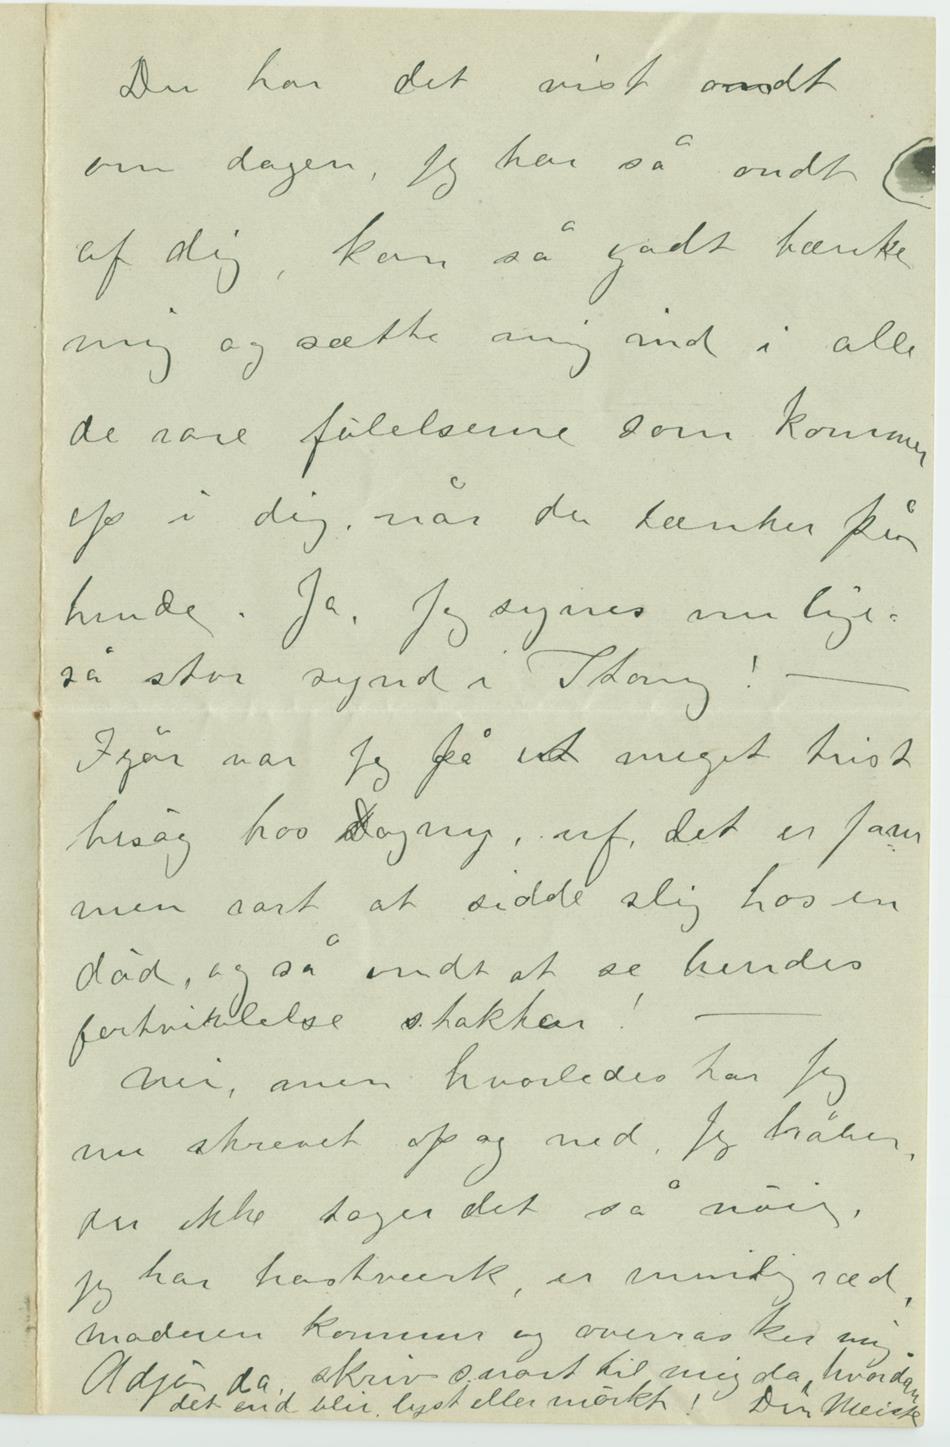 Du har det vist ondt
om dagen, jeg har så ondt
af dig, kan så godt tænke
mig og sætte mig ind i alle
de rare følelserne som kommer
op i dig, når du tænker på
hende. Ja, jeg synes nu lige-
så stor synd i Thony! —
Igår var jeg på et meget trist
besøg hos Dagny, uf, det er jam
men rart at sidde slig hos en
død, og så ondt at se hendes
fortvivlelse stakkar! —
Nei, men hvorledes har jeg
nu skrevet op og ned, jeg håber,
du ikke tager det så nöie,
jeg har hastværk, er nemlig ræd,
moderen kommer og overrasker mig
Adjö da, skriv snart til mig da, hvordan
det end blir, lyst eller mörkt! Din Meisse